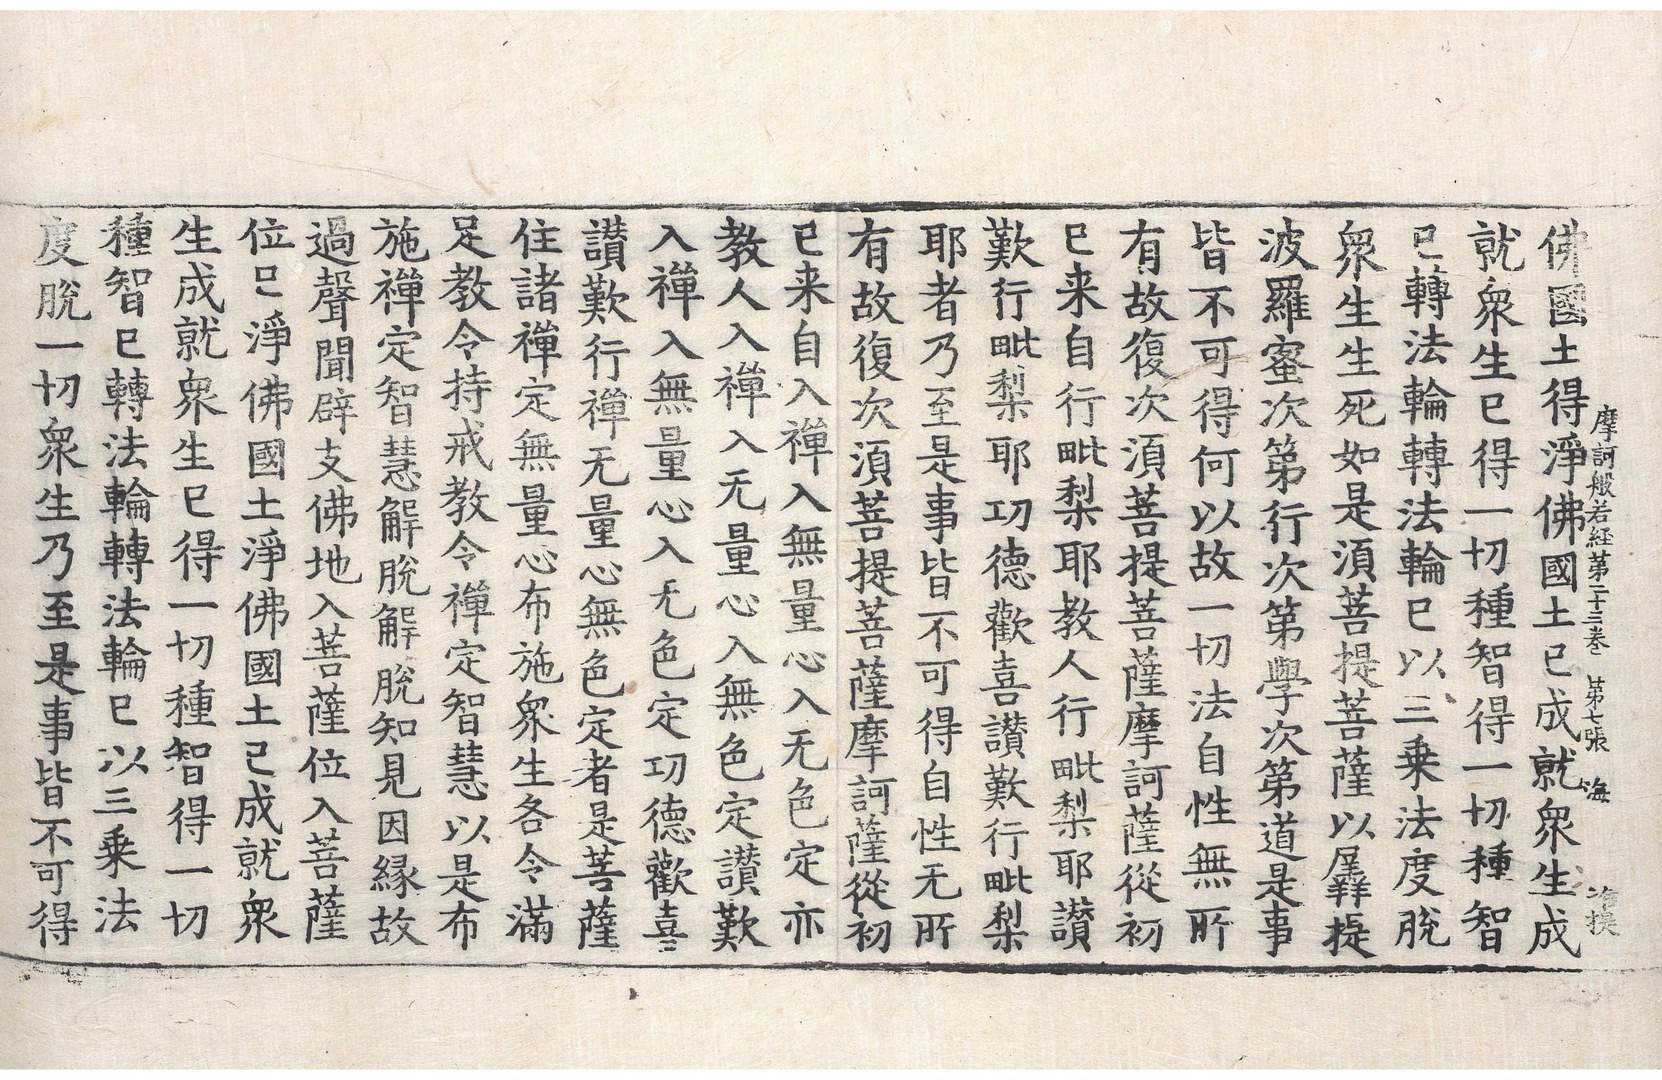 摩訶般若経第二十三巻　第七張　海
佛國土得淨佛國土已成就衆生成
就衆生已得一切種智得一切種智
已轉法輪轉法輪已以三乗法度脫
衆生生死如是湏菩提菩薩以羼提
波羅蜜次第行次第學次第道是事
皆不可得何以故一切法自性無所
有故復次湏菩提菩薩摩訶薩從初
已来自行毗梨耶教人行毗梨耶讃
歎行毗梨耶功德歡喜讃歎行毗梨
耶者乃至是事皆不可得自性无所
有故復次湏菩提菩薩摩訶薩從初
已来自入禪入無量心入无色定亦
教人入禪入无量心入無色定讃歎
入禪入無量心入无色定功德歡喜
讃歎行禪无量心無色定者是菩薩
住諸禪定無量心布施衆生各令滿
足教令持戒教令禪定智慧以是布
施禪定智慧解脫解脫知見因縁故
過聲聞辟支佛地入菩薩位入菩薩
位已淨佛國土淨佛國土已成就衆
生成就衆生已得一切種智得一切
種智已轉法輪轉法輪已以三乗法
度脫一切衆生乃至是事皆不可得